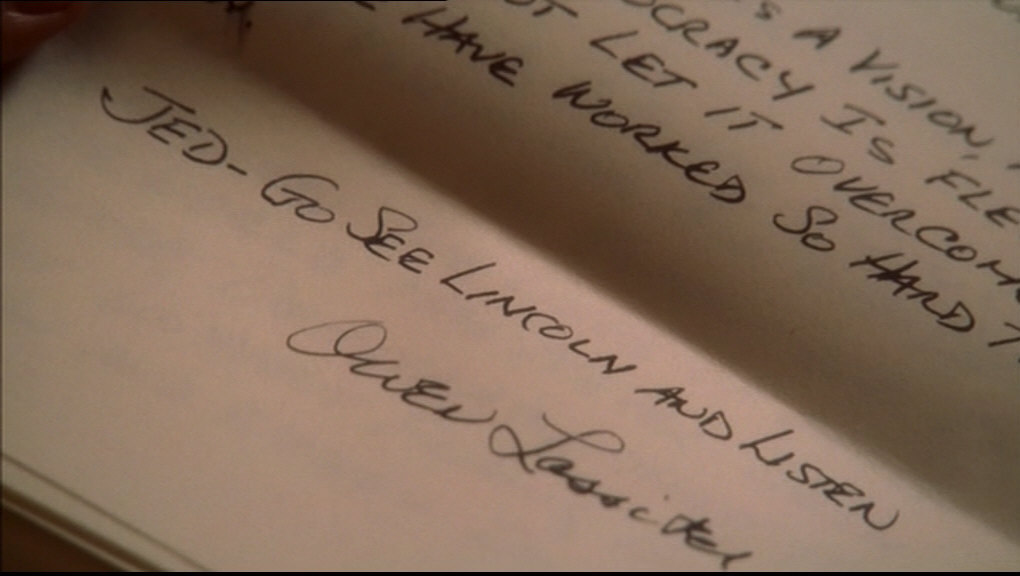 'S A VISION,
OCRACY IS FLE
OT LET IT OVERCOM
HAVE WORKED SO HARD T
JED- GO SEE LINCOLN AND LISTEN
Owen Lassiter